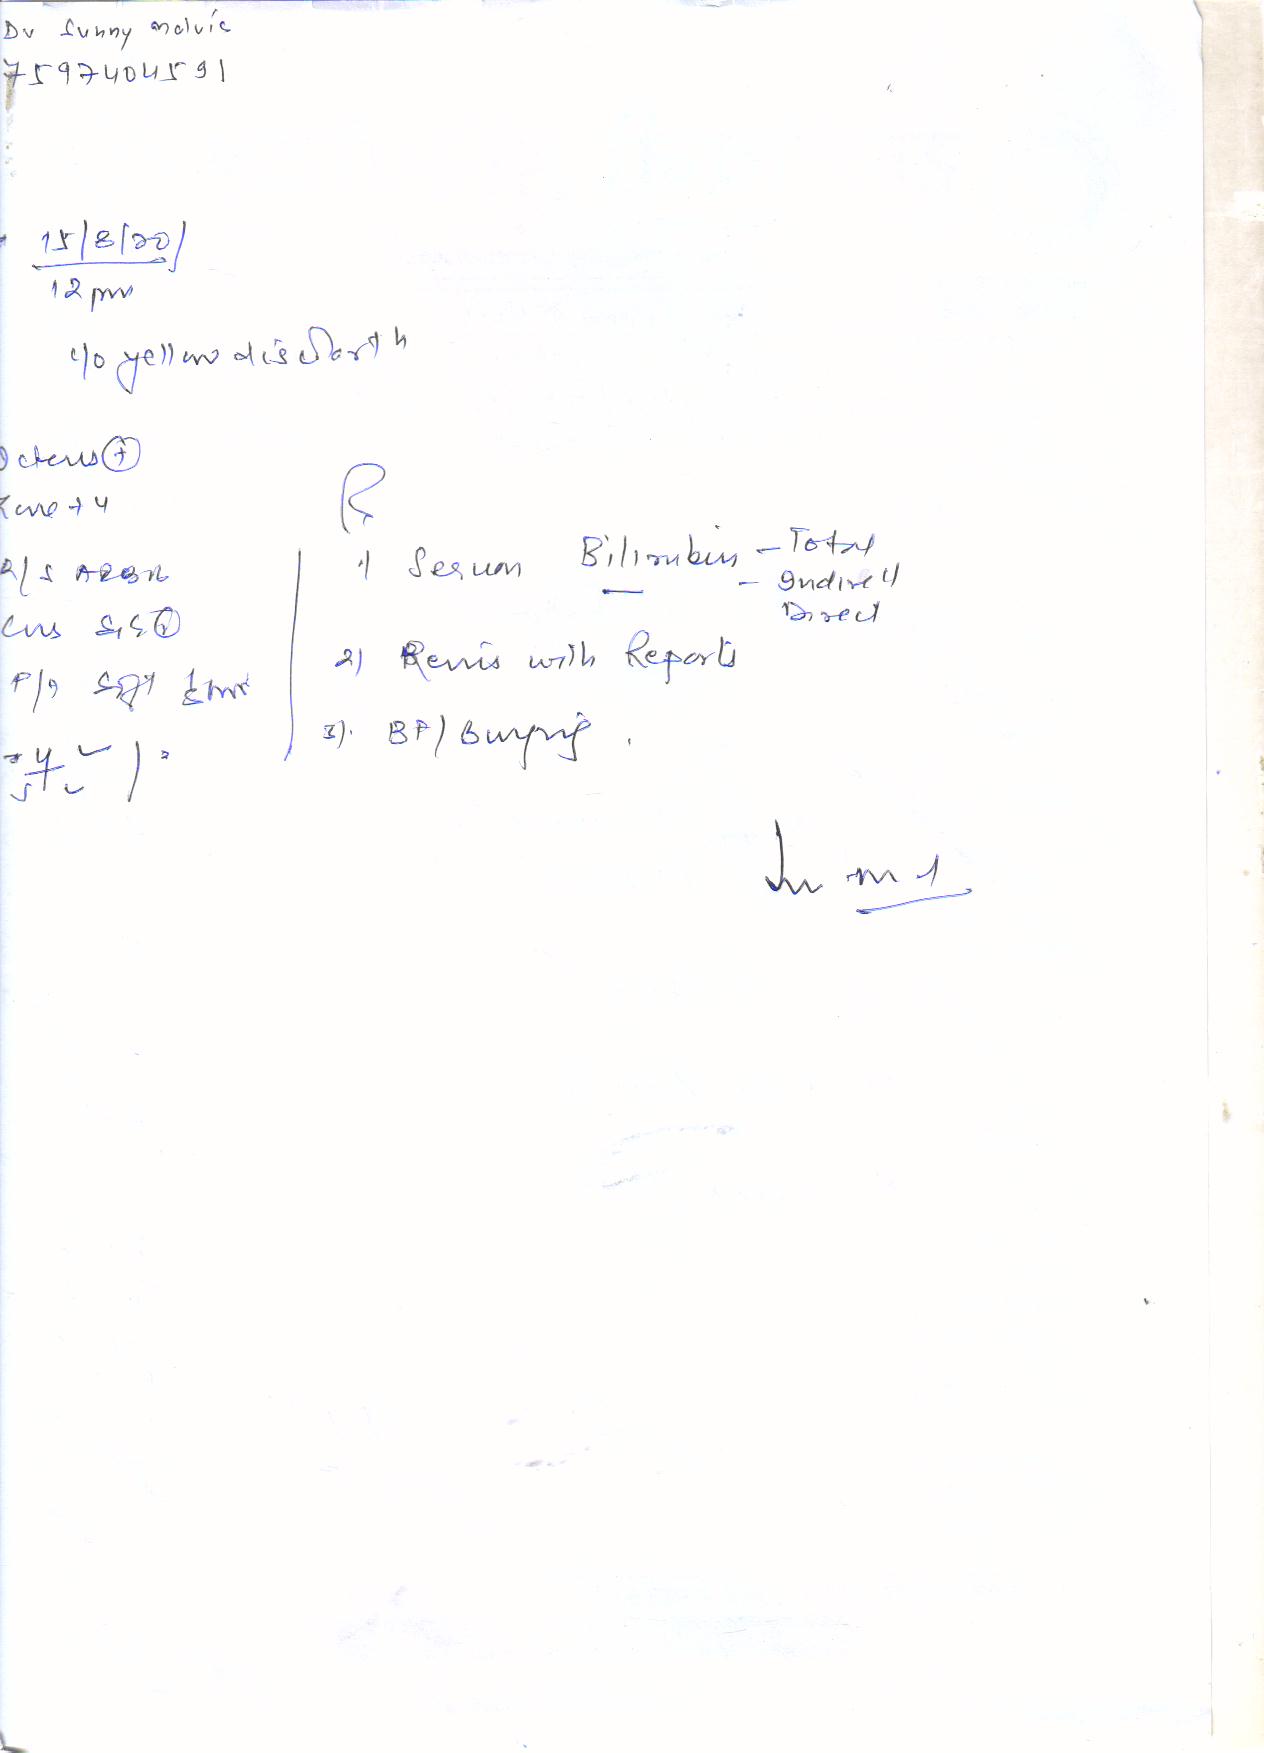 Dr Sunny Malvia
7597404591
15/8/20
12 pm
c/o yellow
Icterus +
Zone + 4
R/S AEBE
CVS S1S2 +
P/A Soft
Rx
1) Serum Bilirubin - Total
- Indirect
Direct
2) Revis with Reports
3). BF/ Burping.